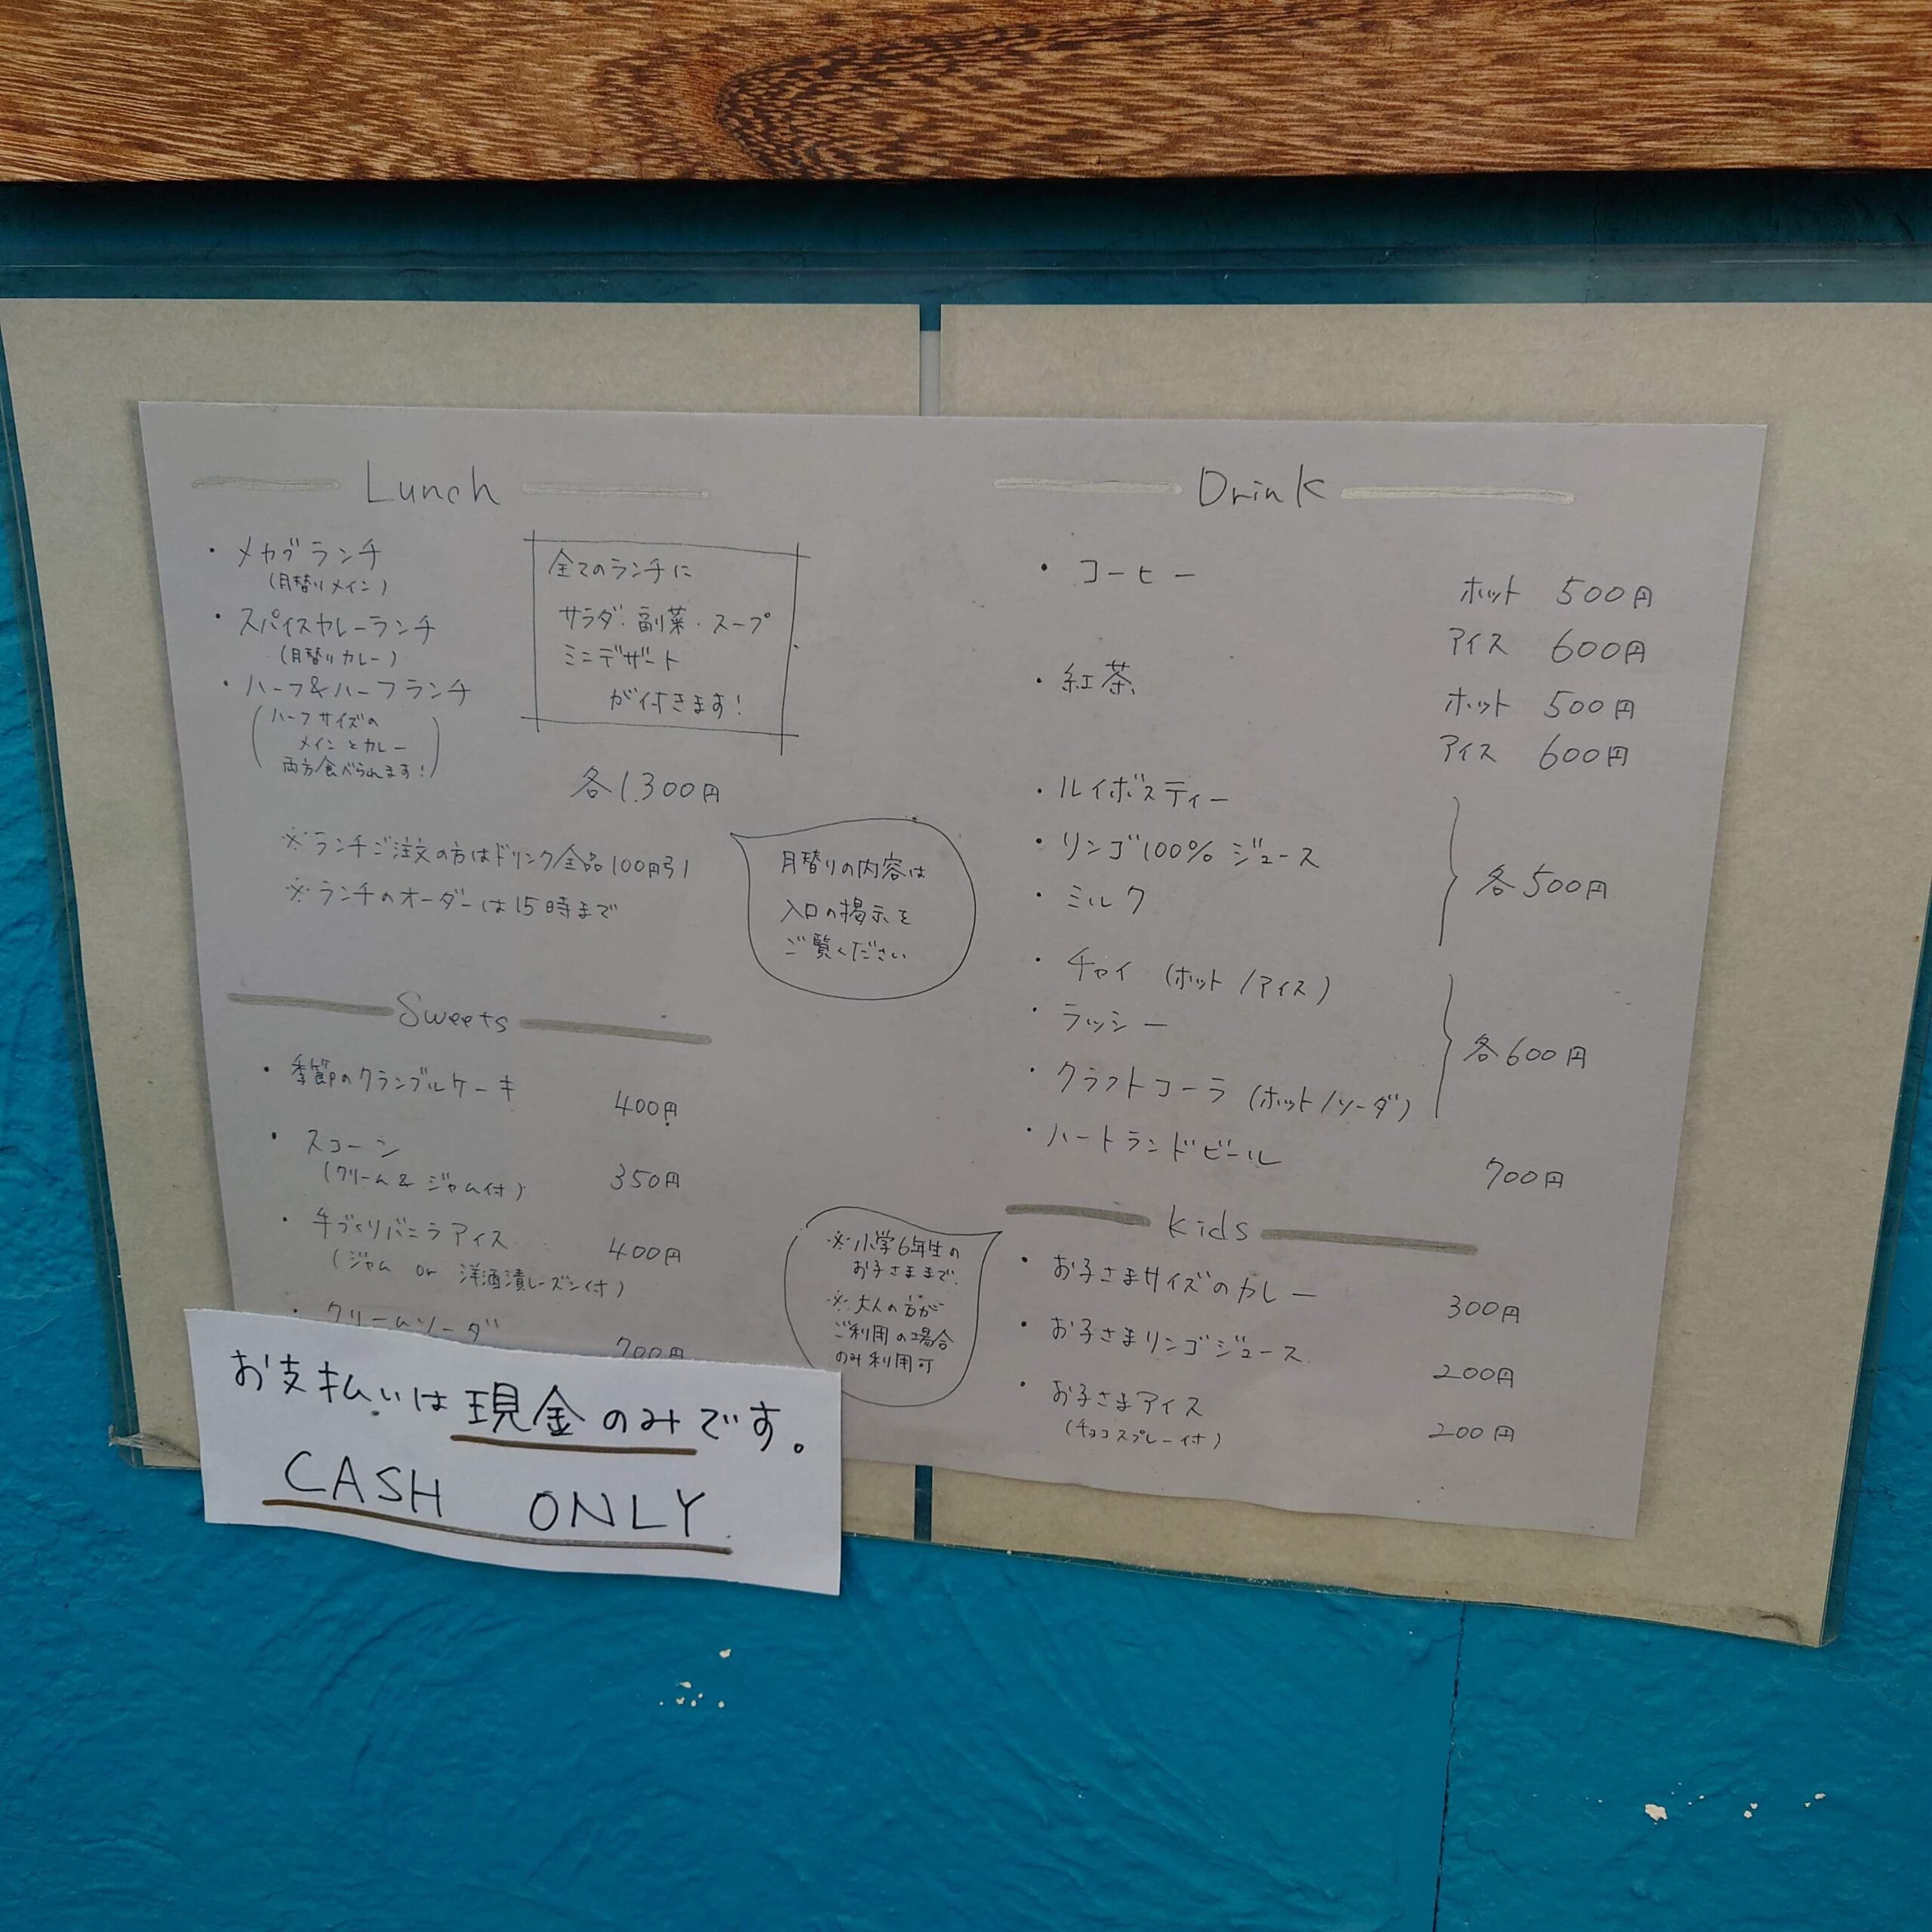 Lunch
・メカブランチ
(月替りメイン)
・スパイスカレーランチ
(月替りカレー)
・ハーフ&ハーフランチ
(ハーフサイズの
メインとカレー
両方食べられます!)
全てのランチに
サラダ・副菜・スープ
ミニデザート
が付きます!
各1,300円
※ランチご注文の方はドリンク全品100円引
※ランチのオーダーは15時まで
月替りの内容は
入口の掲示を
ご覧ください
Sweets
・季節のクランブルケーキ 400円
・スコーン 350円
(クリーム&ジャム付)
・手づくりバニラアイス 400円
(ジャム or 洋酒漬レーズン付)
・クリームソーダ 700円
お支払いは現金のみです。
CASH ONLY.
Drink
・コーヒー ホット 500円
アイス 600円
・紅茶 ホット 500円
アイス 600円
・ルイボスティー
・リンゴ100%ジュース
・ミルク
各500円
・チャイ (ホット/アイス)
・ラッシー
・クラフトコーラ (ホット/ソーダ)
各600円
・ハートランドビール 700円
kids
・お子さまサイズのカレー 300円
・お子さまリンゴジュース 200円
・お子さまアイス 200円
(チョコスプレー付)
※小学6年生の
お子さままで.
※大人の方が
ご利用の場合
のみ利用可